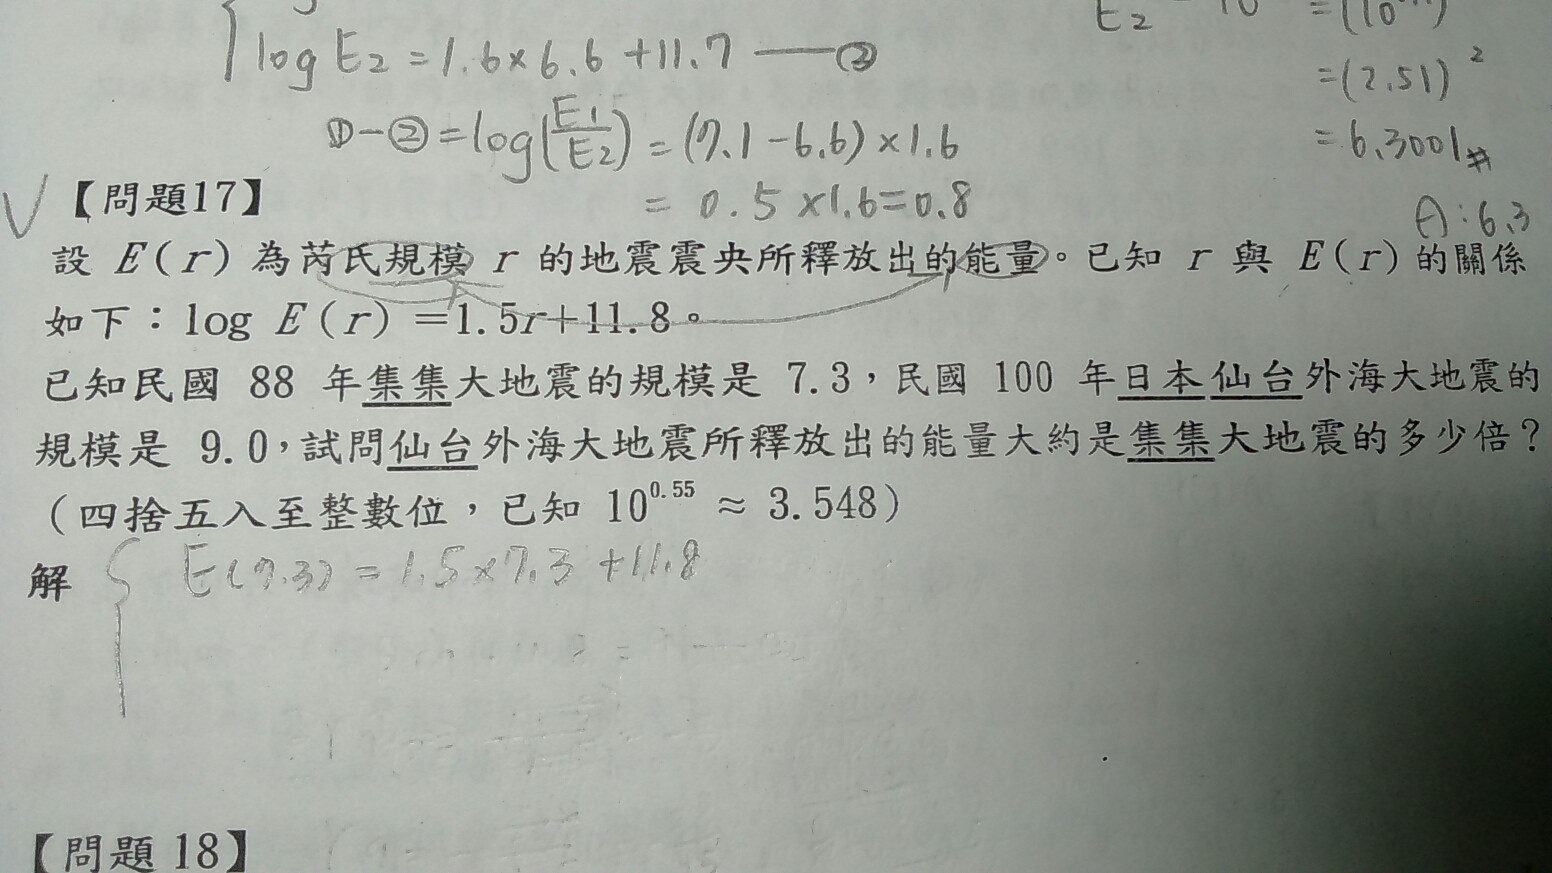 log E₂ = 1.6×6.6 + 11.7 ——②
①-② = log(E₁/E₂) = (7.1-6.6)×1.6
= 0.5×1.6=0.8
E₂
=(2.51)²
=6.3001#
A:6.3
【問題17】
設 E(r) 為芮氏規模 r 的地震震央所釋放出的能量。已知 r 與 E(r) 的關係
如下:log E(r) =1.5r+11.8。
已知民國 88 年集集大地震的規模是 7.3,民國 100 年日本仙台外海大地震的
規模是 9.0,試問仙台外海大地震所釋放出的能量大約是集集大地震的多少倍?
(四捨五入至整數位,已知 10^0.55 ≈ 3.548)
解 { E(7.3) = 1.5×7.3 +11.8
【問題 18】